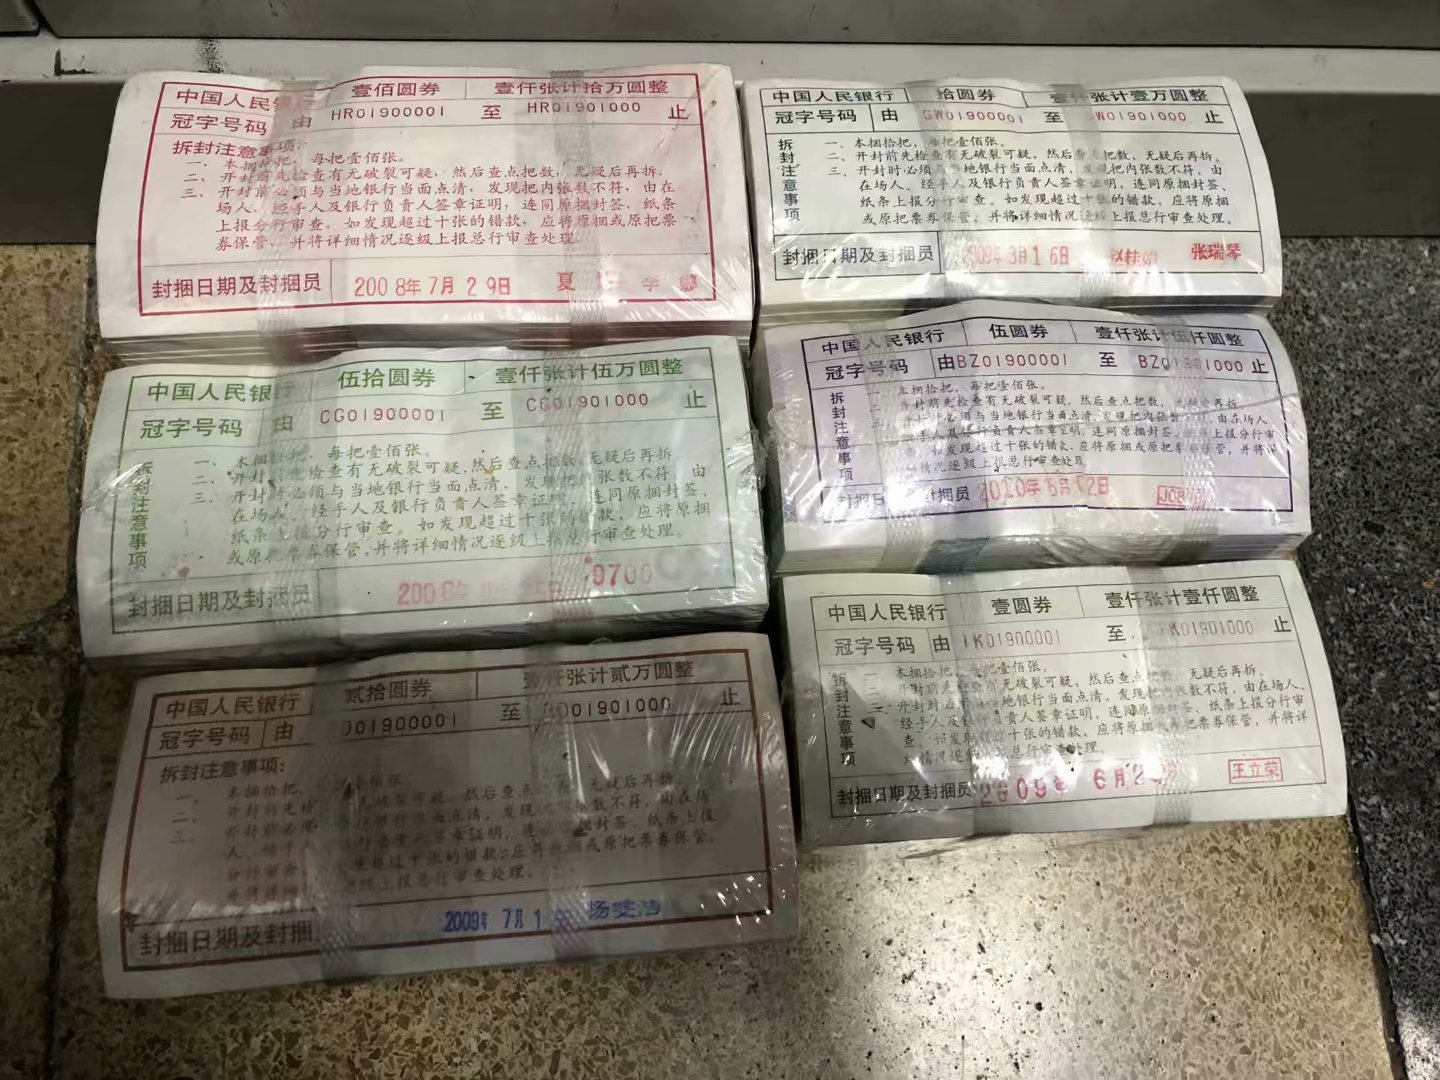 中国人民银行 壹佰圆券 壹仟张计拾万圆整
冠字号码 由 HR01900001 至 HR01901000 止
拆封注意事项:
一、本捆拾把,每把壹佰张。
二、开封前先检查有无破裂可疑,然后查点把数,无疑后再拆。
三、开封前必须与当地银行当面点清,发现把内张数不符,由在
场人、经手人及银行负责人签章证明,连同原捆封签,纸条
上报分行审查。如发现超过十张的错款,应将原捆或原把票
券保管,并将详细情况逐级上报总行审查处理。
封捆日期及封捆员 2008年7月29日 夏 李
中国人民银行 伍拾圆券 壹仟张计伍万圆整
冠字号码 由 CG01900001 至 CG01901000 止
拆封注意事项
一、本捆拾把,每把壹佰张。
二、开封前先检查有无破裂可疑,然后查点把数,无疑后再拆。
三、开封时必须与当地银行当面点清,发现把内张数不符,由
在场人、经手人及银行负责人签章证明,连同原捆封签,
纸条上报分行审查。如发现超过十张的错款,应将原捆
或原把票券保管,并将详细情况逐级上报总行审查处理。
封捆日期及封捆员 2008年 日 0706
中国人民银行 贰拾圆券 壹仟张计贰万圆整
冠字号码 由 01900001 至 01901000 止
拆封注意事项:
一、本捆拾把, 壹佰张。
二、开封前先检 无破裂可疑,然后查点 无疑后再拆。
三、开封前必须 银行当面点清,发现 张数不符,由在场
人、经手人 行负责人签章证明,连 捆封签、纸条上报
分行审查 超过十张的错款,应将原捆或原把票券保管,
并将详细情 逐级上报总行审查处理。
封捆日期及封捆 2009年 7月1 杨雯洁
中国人民银行 拾圆券 壹仟张计壹万圆整
冠字号码 由 GW01900001 至 GW01901000 止
拆封注意事项
一、本捆拾把,每把壹佰张。
二、开封前先检查有无破裂可疑,然后查点把数,无疑后再拆。
三、开封时必须与当地银行当面点清,发现把内张数不符,由
在场人、经手人及银行负责人签章证明,连同原捆封签、
纸条上报分行审查。如发现超过十张的错款,应将原捆
或原把票券保管,并将详细情况逐级上报总行审查处理。
封捆日期及封捆员 2009年3月16日 赵桂 张瑞琴
中国人民银行 伍圆券 壹仟张计伍仟圆整
冠字号码 由BZ01900001 至 BZ01901000 止
拆封注意事项
本捆拾把,每把壹佰张。
开封前先检查有无破裂可疑,然后查点把数,无疑后再拆。
开封时必须与当地银行当面点清,发现把内张数 由在场人
经手人及银行负责人签章证明,连同原捆封签、 上报分行审
查。如发现超过十张的错款,应将原捆或原把票券保管,并将详
细情况逐级上报总行审查处理
封捆日期及封捆员 2010年6月02日
中国人民银行 壹圆券 壹仟张计壹仟圆整
冠字号码 由 IK01900001 至 IK01901000 止
拆封注意事项
一、本捆拾把,每把壹佰张。
二、开封前先检查有无破裂可疑,然后查点 无疑后再拆。
三、开封时必须与当地银行当面点清,发现把内张数不符,由在场人、
经手人及银行负责人签章证明,连同原捆封签、纸条上报分行审
查。如发现超过十张的错款,应将原捆或原把票券保管,并将详
细情况逐级上报总行审查处理。
封捆日期及封捆员 2009年 6月2 王立荣